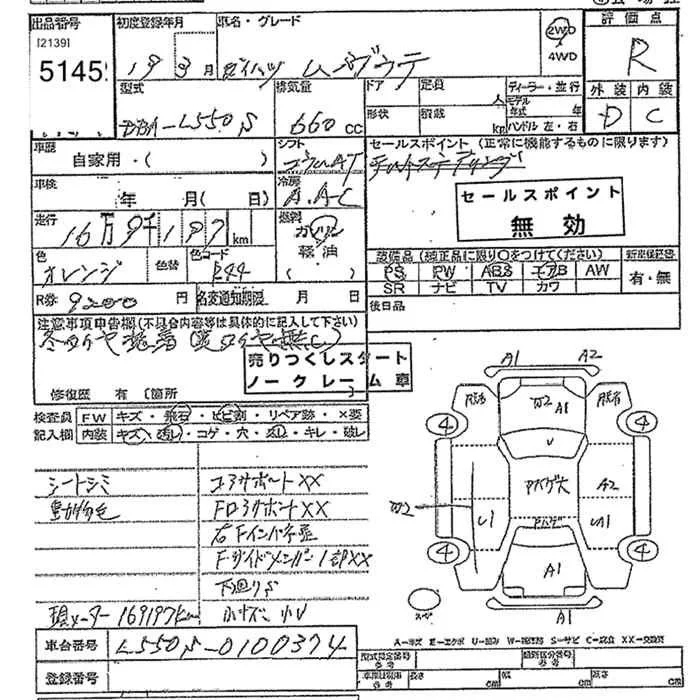 出品番号
[2139]
5145
初度登録年月
19 3月
車名・グレード
ダイハツ ムーヴラテ
2WD
4WD
評価点
R
外装 内装
D C
型式
DBA-L550S
排気量
660cc
ドア
定員
人
形状
積載
kg
ディーラー・並行
モデル
年式 年
ハンドル 左・右
車歴
自家用・( )
シフト
コラムAT
冷房
A.A-C
セールスポイント (正常に機能するものに限ります)
セールスポイント
無効
車検
年 月( 日)
走行
16万9千197km
燃料
ガソリン
軽油
色
オレンジ
色替
色コード
設備品 (純正品に限り○をつけてください)
PS PW ABS エアB AW
SR ナビ TV カワ
新車保証書
有・無
R券 9200円
名変通知期限 月 日
後日品
注意事項申告欄(不具合内容等は具体的に記入して下さい)
冬タイヤ装着(夏タイヤ無し)
売りつくしスタート
ノークレーム車
修復歴 有 (箇所
検査員
記入欄
FW キズ・飛石・ヒビ割・リペア跡・×要
内装 キズ・汚レ・コゲ・穴・スレ・キレ・破レ
シートシミ
動物毛
コアサポートXX
右Fインパネ歪
下回りS
小キズ 小U
現メーター 169197km
車台番号 L550S-0100374
登録番号
A1 A2
脱着 W2 A1 脱着
4 4
U
アバゲ大
A2
W2
U1
アバゲ
4 4
A1
A1
スペア
A-キズ E-エクボ U-凹み W-補修跡 S-サビ C-腐食 XX-交換済
型式指定番号
参考
類別区分番号
参考
長さ cm 幅 cm 高さ cm